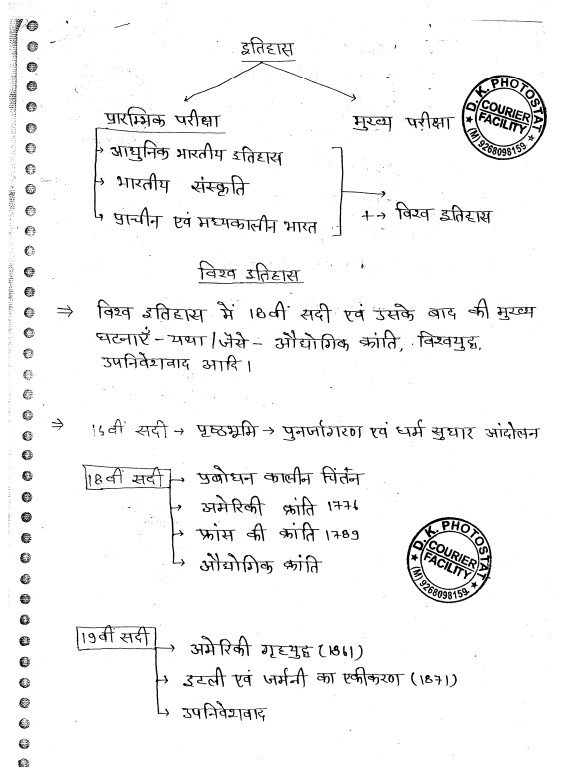 इतिहास
प्रारम्भिक परीक्षा
मुख्य परीक्षा
→ आधुनिक भारतीय इतिहास
→ भारतीय संस्कृति
→ प्राचीन एवं मध्यकालीन भारत
+→ विश्व इतिहास
D.K. PHOTOSTAT
COURIER
FACILITY
(M) 9268098159
विश्व इतिहास
⇒ विश्व इतिहास में 18वीं सदी एवं उसके बाद की मुख्य
घटनाएँ - यथा/जैसे - औद्योगिक क्रांति, विश्वयुद्ध,
उपनिवेशवाद आदि।
⇒ 15वीं सदी → पृष्ठभूमि → पुनर्जागरण एवं धर्म सुधार आंदोलन
18वीं सदी → प्रबोधन कालीन चिंतन
→ अमेरिकी क्रांति 1776
→ फ्रांस की क्रांति 1789
→ औद्योगिक क्रांति
D.K. PHOTOSTAT
COURIER
FACILITY
(M) 9268098159
19वीं सदी → अमेरिकी गृहयुद्ध (1861)
→ इटली एवं जर्मनी का एकीकरण (1871)
→ उपनिवेशवाद